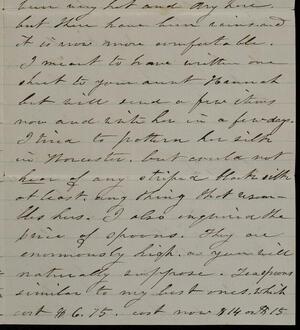 been very hot and dry here
but there have been rains and
it is now more comfortable.
I meant to have written one
sheet to your aunt Hannah
but will send a few items
now and write her in a few days.
I tried to pattern her silk
in Worcester, but could not
hear of any striped black silk
at least, any thing that resem-
bles hers. I also inquired the
price of spoons. They are
enormously high, as you will
naturally suppose. Teaspoons
similar to my best ones, which
cost $6.75. cost now $14 or $15